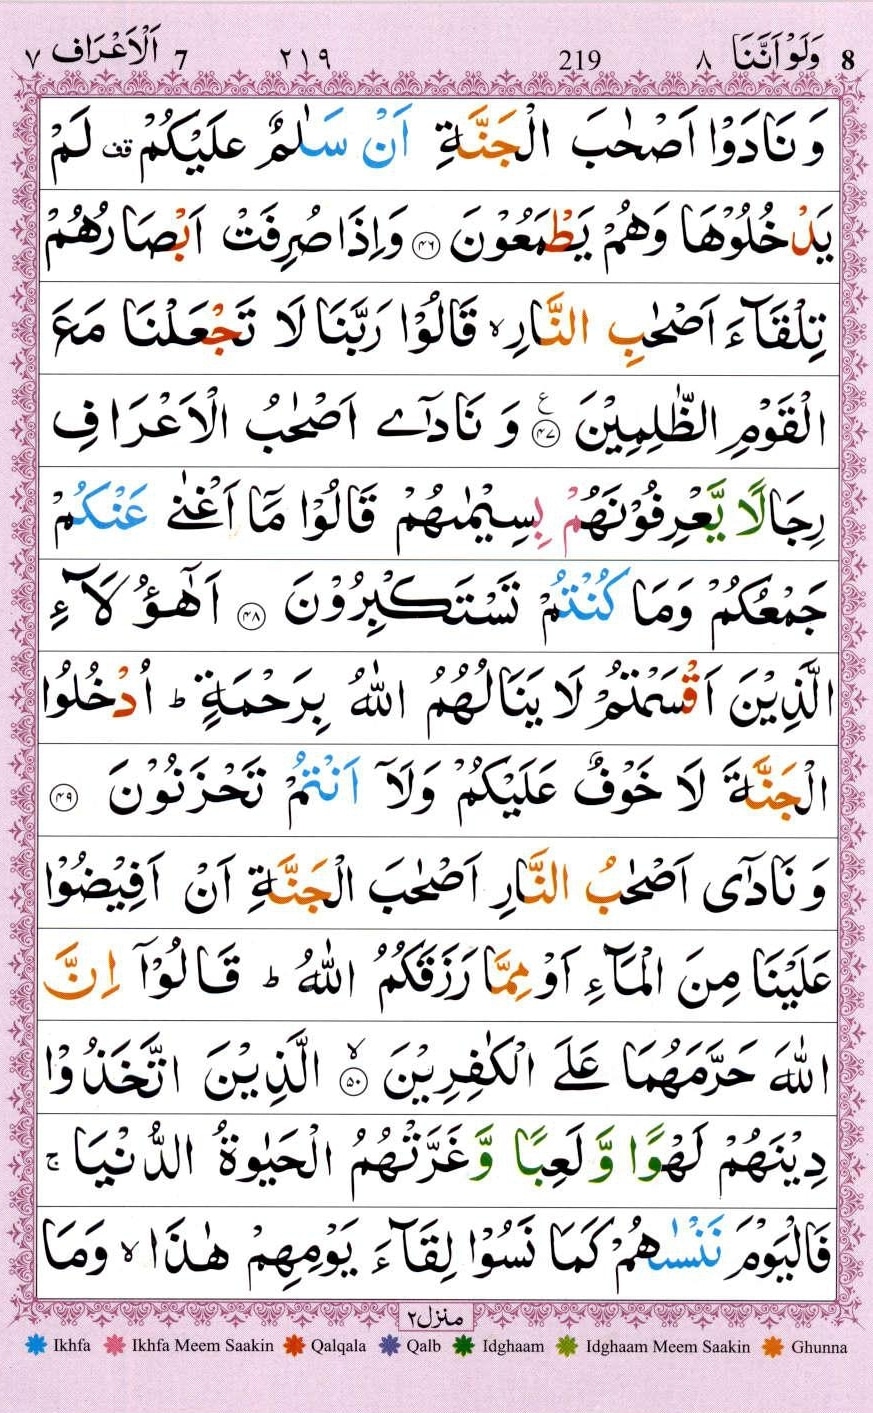 8 وَلَوْ اَنَّنَا ٨ 219 ٢١٩ 7 اَلْاَعْرَاف ٧
وَ نَادَوْا اَصْحٰبَ الْجَنَّةِ اَنْ سَلٰمٌ عَلَيْكُمْ قف لَمْ
يَدْخُلُوْهَا وَهُمْ يَطْمَعُوْنَ ﴿۴۶﴾ وَاِذَا صُرِفَتْ اَبْصَارُهُمْ
تِلْقَآءَ اَصْحٰبِ النَّارِ ۙ قَالُوْا رَبَّنَا لَا تَجْعَلْنَا مَعَ
الْقَوْمِ الظّٰلِمِيْنَ ﴿۴۷﴾ ع وَ نَادٰٓى اَصْحٰبُ الْاَعْرَافِ
رِجَالًا يَّعْرِفُوْنَهُمْ بِسِيْمٰىهُمْ قَالُوْا مَآ اَغْنٰى عَنْكُمْ
جَمْعُكُمْ وَمَا كُنْتُمْ تَسْتَكْبِرُوْنَ ﴿۴۸﴾ اَهٰٓؤُلَآءِ
الَّذِيْنَ اَقْسَمْتُمْ لَا يَنَالُهُمُ اللّٰهُ بِرَحْمَةٍ ؕ اُدْخُلُوا
الْجَنَّةَ لَا خَوْفٌ عَلَيْكُمْ وَلَآ اَنْتُمْ تَحْزَنُوْنَ ﴿۴۹﴾
وَ نَادٰٓى اَصْحٰبُ النَّارِ اَصْحٰبَ الْجَنَّةِ اَنْ اَفِيْضُوْا
عَلَيْنَا مِنَ الْمَآءِ اَوْ مِمَّا رَزَقَكُمُ اللّٰهُ ؕ قَالُوْٓا اِنَّ
اللّٰهَ حَرَّمَهُمَا عَلَى الْكٰفِرِيْنَ ﴿۵۰﴾ ۙ الَّذِيْنَ اتَّخَذُوْا
دِيْنَهُمْ لَهْوًا وَّ لَعِبًا وَّ غَرَّتْهُمُ الْحَيٰوةُ الدُّنْيَا ۚ
فَالْيَوْمَ نَنْسٰىهُمْ كَمَا نَسُوْا لِقَآءَ يَوْمِهِمْ هٰذَا ۙ وَمَا
منزل٢
Ikhfa Ikhfa Meem Saakin Qalqala Qalb Idghaam Idghaam Meem Saakin Ghunna